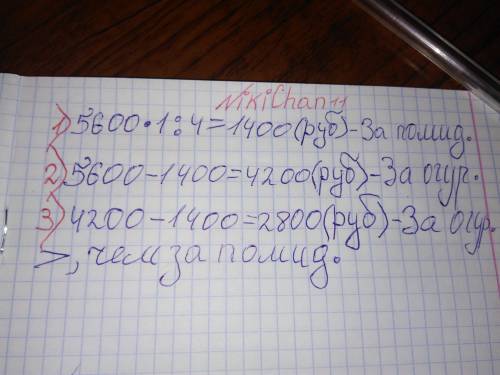 NikiChan11
1) 5600•1:4=1400(руб)-За помид.
2) 5600-1400=4200(руб)-За огур.
3) 4200-1400=2800(руб)-За огур.
>, чем за помид.